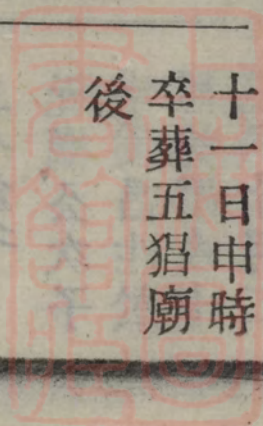 十一日申時
卒葬五猖廟
後